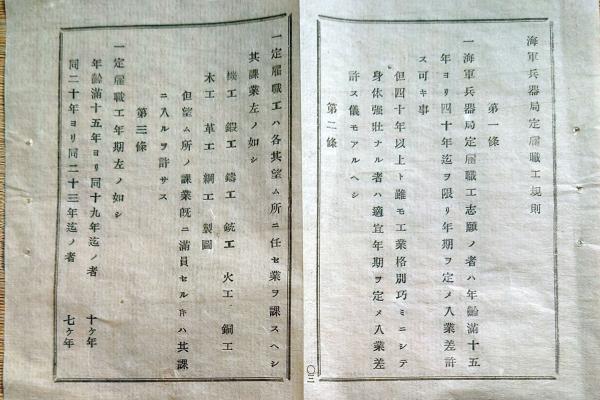 海軍兵器局定雇職工規則
第一條
一海軍兵器局定雇職工志願ノ者ハ年齡滿十五
年ヨリ四十年迄ヲ限リ年期ヲ定メ入業差許
ス可キ事
但四十年以上ト雖モ工業格別巧ミニシテ
身体强壯ナル者ハ適宜年期ヲ定メ入業差
許ス儀モアルヘシ
第二條
一定雇職工ハ各其望ム所ニ任セ業ヲ課スヘシ
其課業左ノ如シ
機工 鍛工 鑄工 銃工 火工 銅工
木工 革工 綱工 製圖
但望ム所ノ課業旣ニ滿員セル𪜈ハ其課
ニ入ルヲ許サス
第三條
一定雇職工年期左ノ如シ
年齡滿十五年ヨリ同十九年迄ノ者 十ケ年
同二十年ヨリ同二十三年迄ノ者 七ケ年